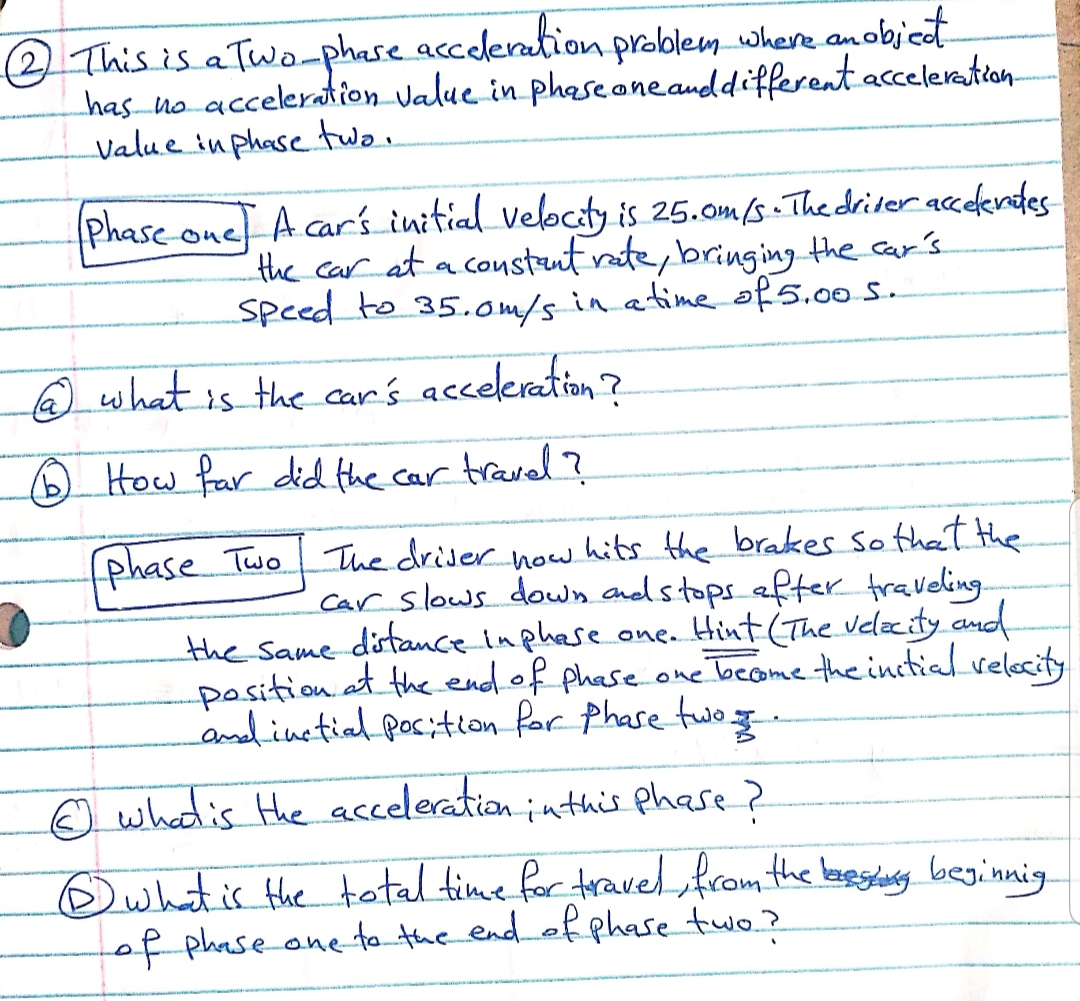 ② This is a Two-phase acceleration problem where an object
has no acceleration value in phase one and different acceleration
value in phase two.
Phase one A car's initial velocity is 25.0m/s. The driver accelerates
the car at a constant rate, bringing the car's
speed to 35.0m/s in a time of 5.00 s.
ⓐ what is the car's acceleration?
ⓑ How far did the car travel?
phase Two The driver now hits the brakes so that the
car slows down and stops after traveling
the same distance in phase one. Hint (The velocity and
position at the end of phase one become the initial velocity
and initial position for phase two
ⓒ what is the acceleration in this phase?
Ⓓ what is the total time for travel, from the beginnig
of phase one to the end of phase two?